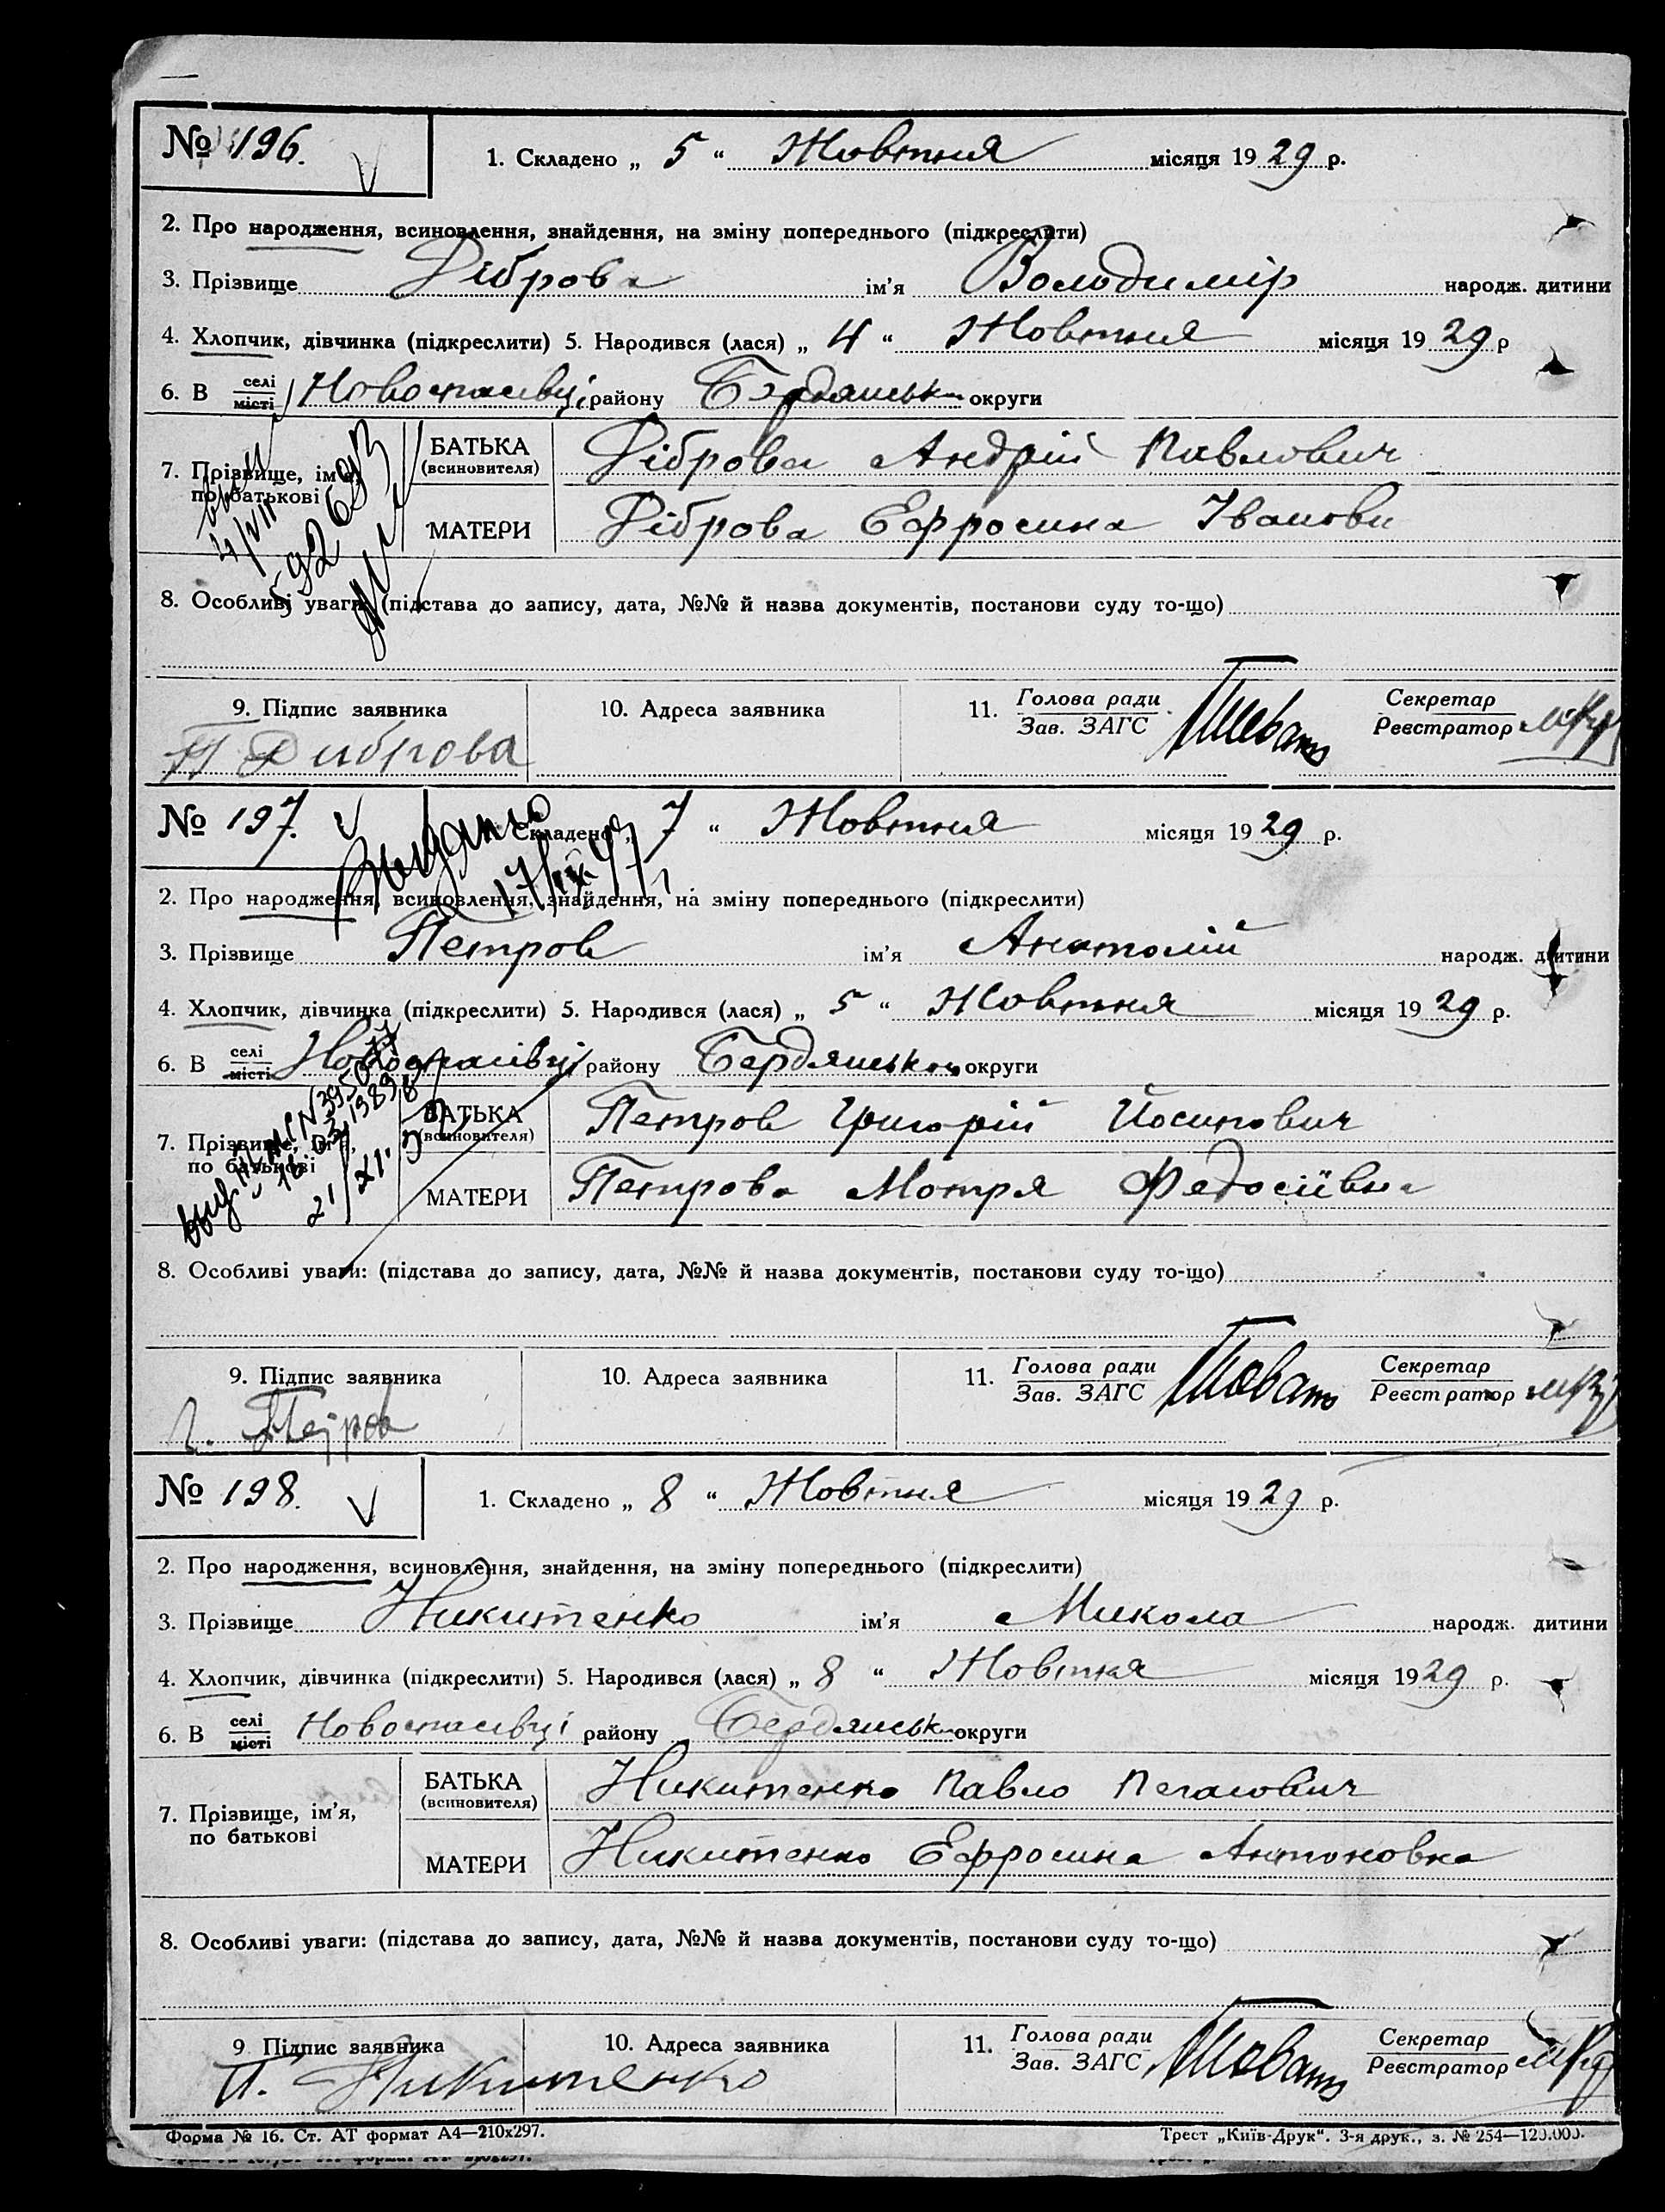 № 196.
1. Складено „ 5 “ Жовтня місяця 1929 р.
2. Про народження, всиновлення, знайдення, на зміну попереднього (підкреслити)
3. Прізвище Діброва ім'я Володимір народж. дитини
4. Хлопчик, дівчинка (підкреслити) 5. Народився (лася) „ 4 “ Жовтня місяця 1929 р
6. В селі місті Новоспасівці району Бердянськ округи
7. Прізвище, ім'я, по батькові
БАТЬКА (всиновителя) Діброва Андрій Павлович
МАТЕРИ Діброва Ефросина Івановн
8. Особливі уваги: (підстава до запису, дата, №№ й назва документів, постанови суду то-що)
9. Підпис заявника
10. Адреса заявника
11. Голова ради Зав. ЗАГС
Секретар Реєстратор
Диброва
№ 197.
Складено „ 7 “ Жовтня місяця 1929 р.
2. Про народження, всиновлення, знайдення, на зміну попереднього (підкреслити)
3. Прізвище Петров ім'я Анатолій народж. дитини
4. Хлопчик, дівчинка (підкреслити) 5. Народився (лася) „ 5 “ Жовтня місяця 1929 р.
6. В селі місті Новоспасівці району Бердянськ округи
7. Прізвище, ім'я, по батькові
БАТЬКА (всиновителя) Петров Григорій Йосипович
МАТЕРИ Петрова Мотря Федосіївна
8. Особливі уваги: (підстава до запису, дата, №№ й назва документів, постанови суду то-що)
9. Підпис заявника
10. Адреса заявника
11. Голова ради Зав. ЗАГС
Секретар Реєстратор
Г. Петров
№ 198.
1. Складено „ 8 “ Жовтня місяця 1929 р.
2. Про народження, всиновлення, знайдення, на зміну попереднього (підкреслити)
3. Прізвище Никитенко ім'я Микола народж. дитини
4. Хлопчик, дівчинка (підкреслити) 5. Народився (лася) „ 8 “ Жовтня місяця 1929 р.
6. В селі місті Новоспасівці району Бердянськ округи
7. Прізвище, ім'я, по батькові
БАТЬКА (всиновителя) Никитенко Павло
МАТЕРИ Никитенко Ефросина Антоновна
8. Особливі уваги: (підстава до запису, дата, №№ й назва документів, постанови суду то-що)
9. Підпис заявника
10. Адреса заявника
11. Голова ради Зав. ЗАГС
Секретар Реєстратор
П. Никитенко
Форма № 16. Ст. АТ формат А4—210х297.
Трест „Київ-Друк“. 3-я друк., з. № 254—120.000.